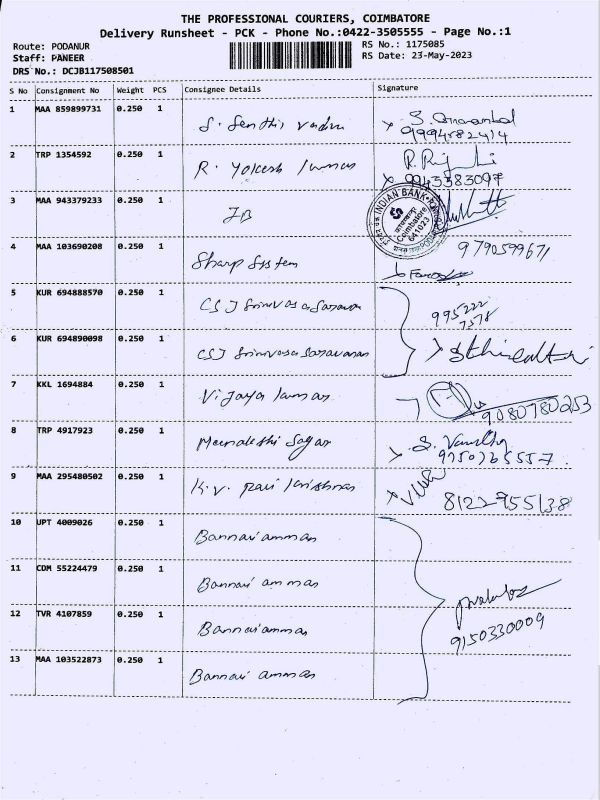 THE PROFESSIONAL COURIERS, COIMBATORE
Delivery Runsheet - PCK - Phone No.:0422-3505555 - Page No.:1
Route: PODANUR
Staff: PANEER
DRS No.: DCJB117508501
RS No.: 1175085
RS Date: 23-May-2023
S No Consignment No Weight PCS Consignee Details Signature
1 MAA 859899731 0.250 1
9994582414
2 TRP 1354592 0.250 1 R.
9943383097
3 MAA 943379233 0.250 1 IB
INDIAN BANK
Coimbatore
641023
4 MAA 103690208 0.250 1 Sharp System
9790599671
5 KUR 694888570 0.250 1 CSJ
995222
7578
6 KUR 694890098 0.250 1 CSJ
7 KKL 1694884 0.250 1 Vijaya kumar
9080780253
8 TRP 4917923 0.250 1
9 MAA 295480502 0.250 1 K.V. ravi krishnan
8122955138
10 UPT 4009026 0.250 1 Bannari amman
11 CDM 55224479 0.250 1 Bannari amman
12 TVR 4107859 0.250 1 Bannari amman
9150330009
13 MAA 103522873 0.250 1 Bannari amman